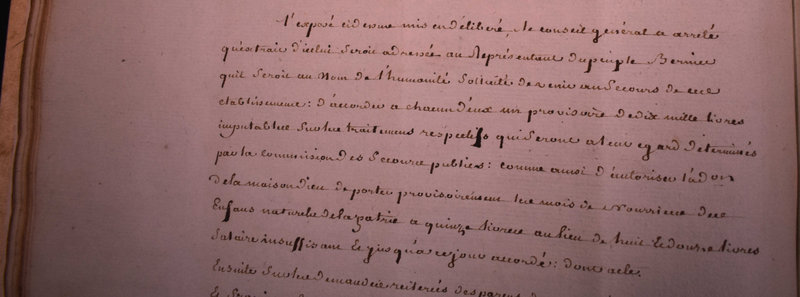 L'exposé cidessus mis en délibéré, le conseil général a arrêté
qu'extrait d'icelui seroit adressée au Représentant du peuple Bernier
qu'il seroit au Nom de l'humanité Sollicité de venir au Secours de ces
établissemens: d'accorder a chacun d'eux un provisoire de dix mille livres
imputables Sur les traitemens respectifs qui Seront a leur egard déterminés
par la Commission des Secours publics: comme aussi d'autoriser
de la maison dieu de porter provisoirement les mois de Nourrices des
Enfans naturels de la patrie a quinze livres au lieu de huit Et douze livres
Salaire insuffisant Et jusqu'a ce jour accordé: dont acte.
Ensuite Sur les demandes reiterées des parens